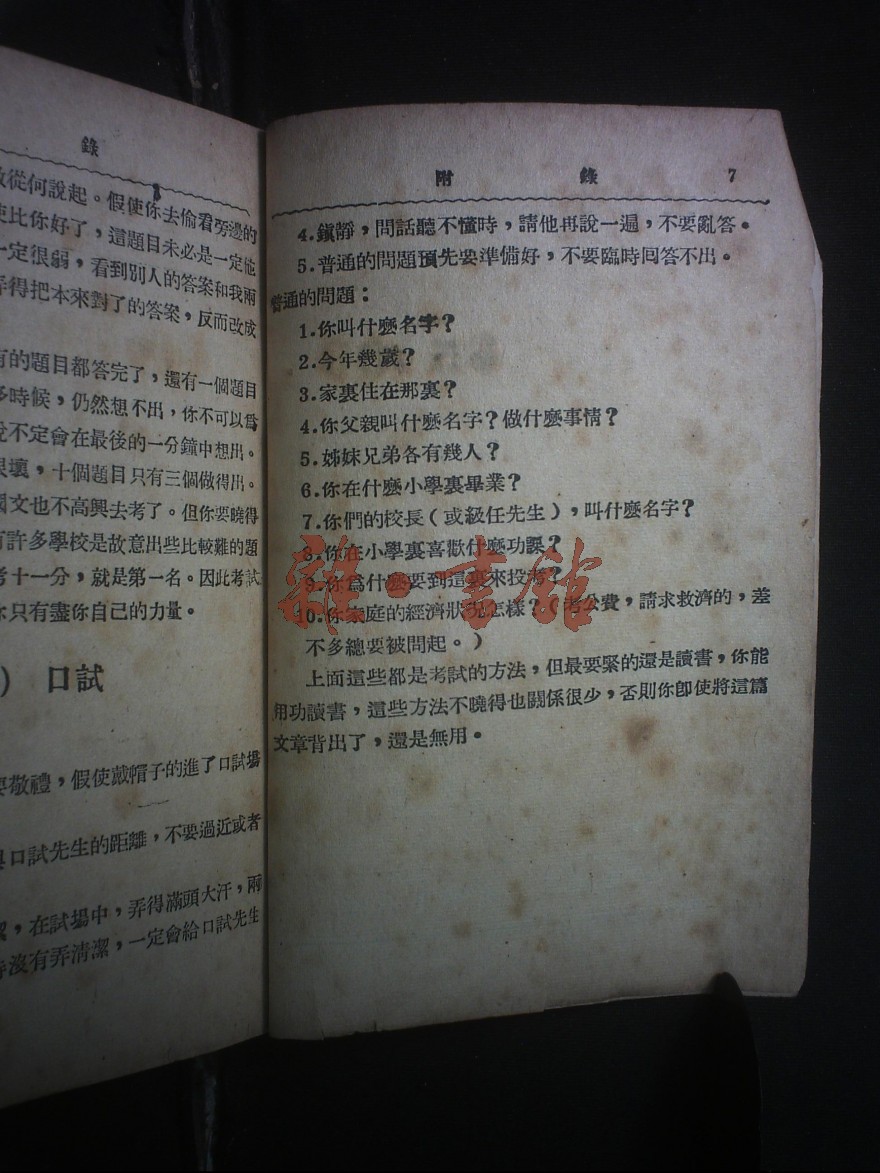 錄
從何說起。假使你去偷看旁邊的
使比你好了，這題目未必是一定他
一定很弱，看到別人的答案和我兩
弄得把本來對了的答案，反而改成
有的題目都答完了，還有一個題目
多時候，仍然想不出，你不可以爲
說不定會在最後的一分鐘中想出。
很壞，十個題目只有三個做得出。
國文也不高興去考了。但你要曉得
有許多學校是故意出些比較難的題
考十一分，就是第一名。因此考試
你只有盡你自己的力量。
） 口試
要敬禮，假使戴帽子的進了口試場
與口試先生的距離，不要過近或者
潔，在試場中，弄得滿頭大汗，兩
沒有弄清潔，一定會給口試先生
附 錄 7
4.鎭靜，問話聽不懂時，請他再說一遍，不要亂答。
5.普通的問題預先要準備好，不要臨時回答不出。
普通的問題：
1.你叫什麼名字？
2.今年幾歲？
3.家裏住在那裏？
4.你父親叫什麼名字？做什麼事情？
5.姊妹兄弟各有幾人？
6.你在什麼小學裏畢業？
7.你們的校長（或級任先生），叫什麼名字？
8.你在小學裏喜歡什麼功課？
9.你爲什麼要到這裏來投考？
10.你家庭的經濟狀況怎樣？（考公費，請求救濟的，差
不多總要被問起。）
上面這些都是考試的方法，但最要緊的還是讀書，你能
用功讀書，這些方法不曉得也關係很少，否則你卽使將這篇
文章背出了，還是無用。
雜·書館